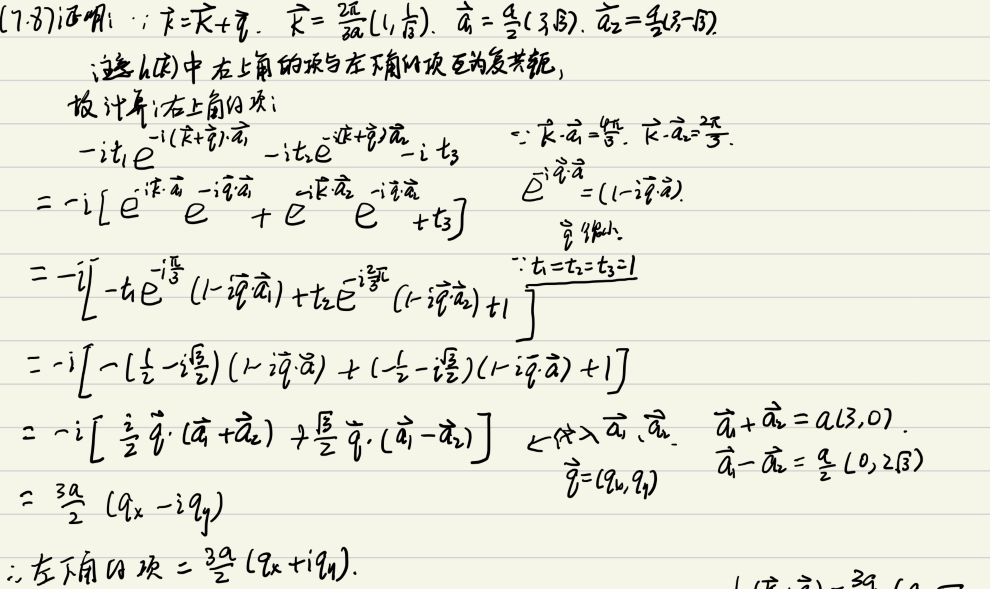 (7.87)证明: ∵ k⃗=K⃗+q⃗. K⃗ = 2π/3a (1, 1/√3). a⃗₁ = a/2 (3,√3). a⃗₂ = a/2 (3,-√3).
注意 h(k⃗) 中 右上角的项与左下角的项互为复共轭,
故计算右上角的项:
-it₁e^{-i(K⃗+q⃗)·a⃗₁} - it₂e^{-i(K⃗+q⃗)a⃗₂} - i t₃ ∵ K⃗·a⃗₁ = 4π/3. K⃗·a⃗₂ = 2π/3.
= -i[e^{-iK⃗·a⃗₁} e^{-iq⃗·a⃗₁} + e^{-iK⃗·a⃗₂} e^{-iq⃗·a⃗₂} + t₃] e^{-iq⃗·a⃗} = (1-iq⃗·a⃗).
q⃗很小.
= -i[-t₁e^{-iπ/3} (1-iq⃗·a⃗₁) + t₂e^{-i2π/3} (1-iq⃗·a⃗₂) + 1] ∵ t₁=t₂=t₃=1
= -i[-(1/2 - i√3/2)(1-iq⃗·a⃗) + (-1/2 - i√3/2)(1-iq⃗·a⃗) + 1]
= -i[i/2 q⃗·(a⃗₁+a⃗₂) + √3/2 q⃗·(a⃗₁-a⃗₂)] ← 代入 a⃗₁、a⃗₂. a⃗₁+a⃗₂ = a(3,0).
q⃗=(qₓ,q_y) a⃗₁-a⃗₂ = a/2 (0,2√3)
= 3a/2 (qₓ - iq_y)
∴ 左下角的项 = 3a/2 (qₓ + iq_y).